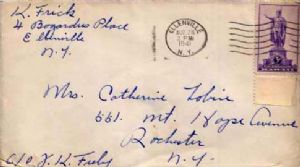 K. Frick
4 Bogardus Place
Ellenville
N.Y.
ELLENVILLE
2 PM
1941
N.Y.
Mrs. Catherine
561 Mt. Hope Avenue
Rochester
N.Y.
C/O J. K.